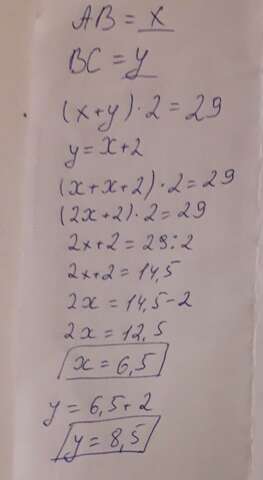 AB = x
BC = y
(x+y)·2=29
y=x+2
(x+x+2)·2=29
(2x+2)·2=29
2x+2=29:2
2x+2=14,5
2x=14,5-2
2x=12,5
x=6,5
y=6,5+2
y=8,5